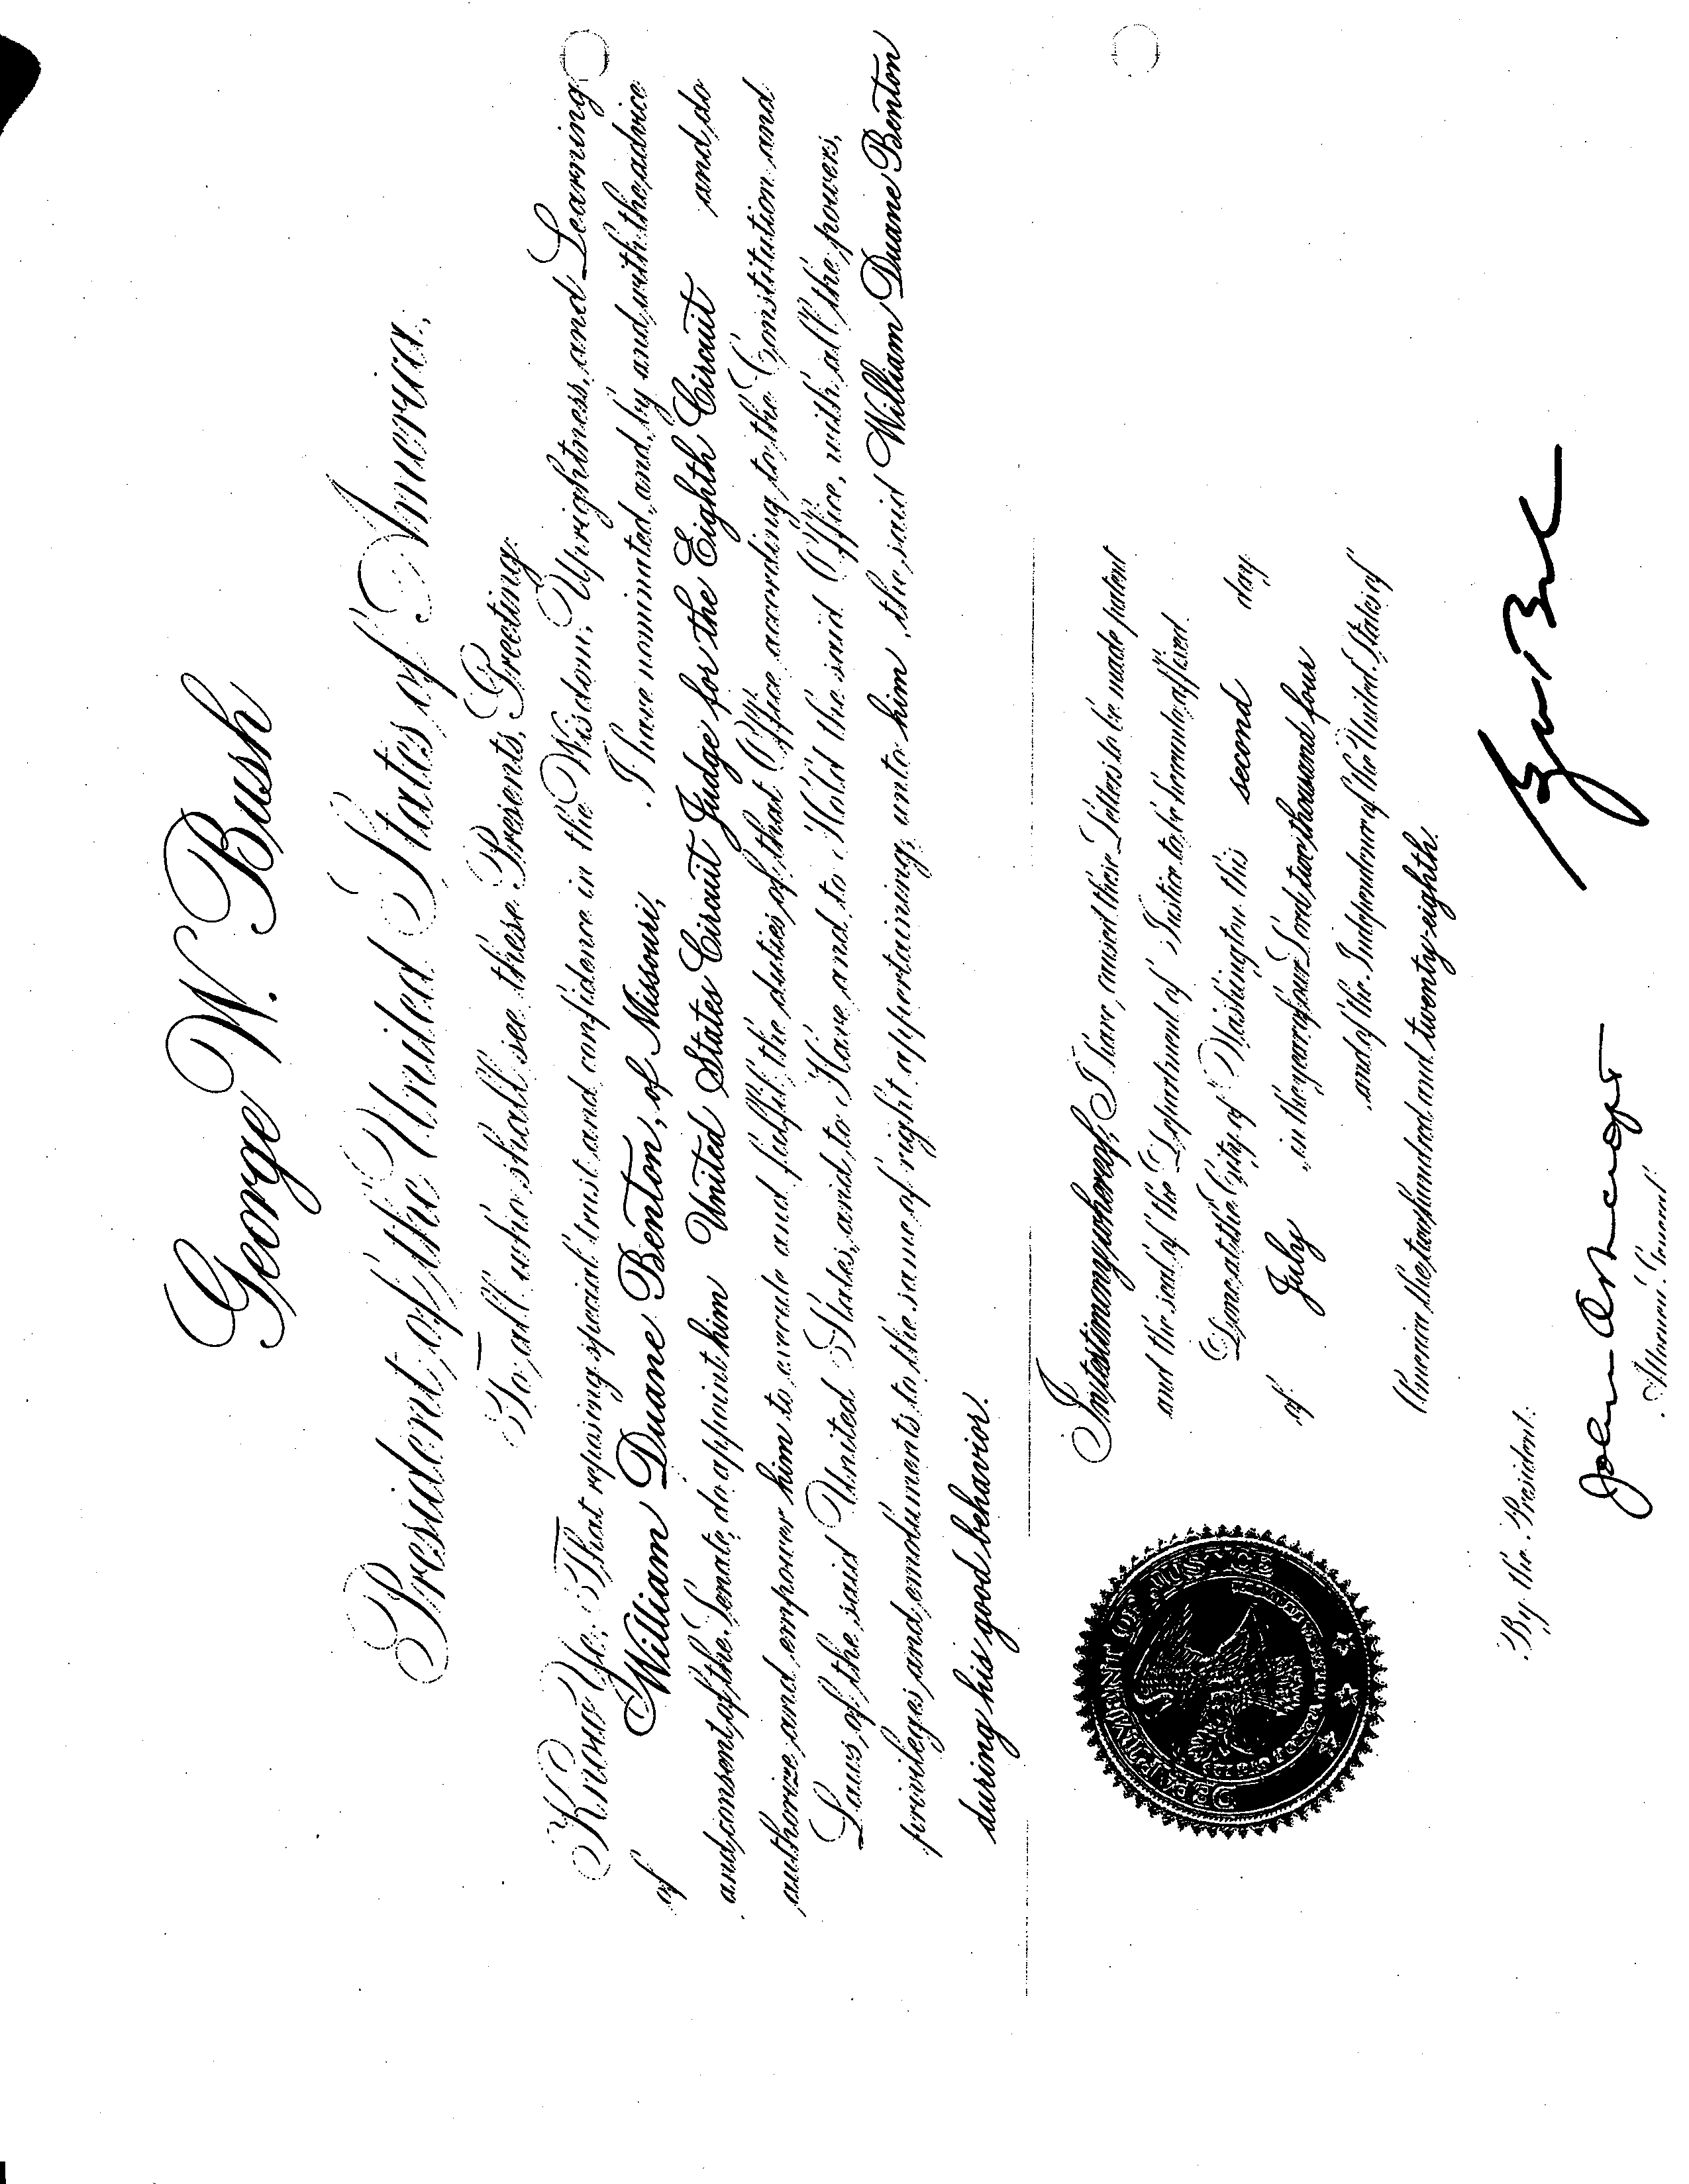 George W. Bush
President of the United States of America,
To all who shall see these Presents, Greeting:
Know Ye; That reposing special trust and confidence in the Wisdom, Uprightness, and Learning
of William Duane Benton, of Missouri, I have nominated, and, by and with the advice
and consent of the Senate, do appoint him United States Circuit Judge for the Eighth Circuit and do
authorize and empower him to execute and fulfil the duties of that Office according to the Constitution and
Laws of the said United States, and to Have and to Hold the said Office, with all the powers,
privileges and emoluments to the same of right appertaining, unto him, the said William Duane Benton
during his good behavior.
In testimony whereof, I have caused these Letters to be made patent
and the seal of the Department of Justice to be hereunto affixed.
Done at the City of Washington this second day
of July in the year of our Lord two thousand four
and of the Independence of the United States of
America the two hundred and twenty-eighth.
DEPARTMENT OF JUSTICE
By the President:
John Ashcroft
Attorney General